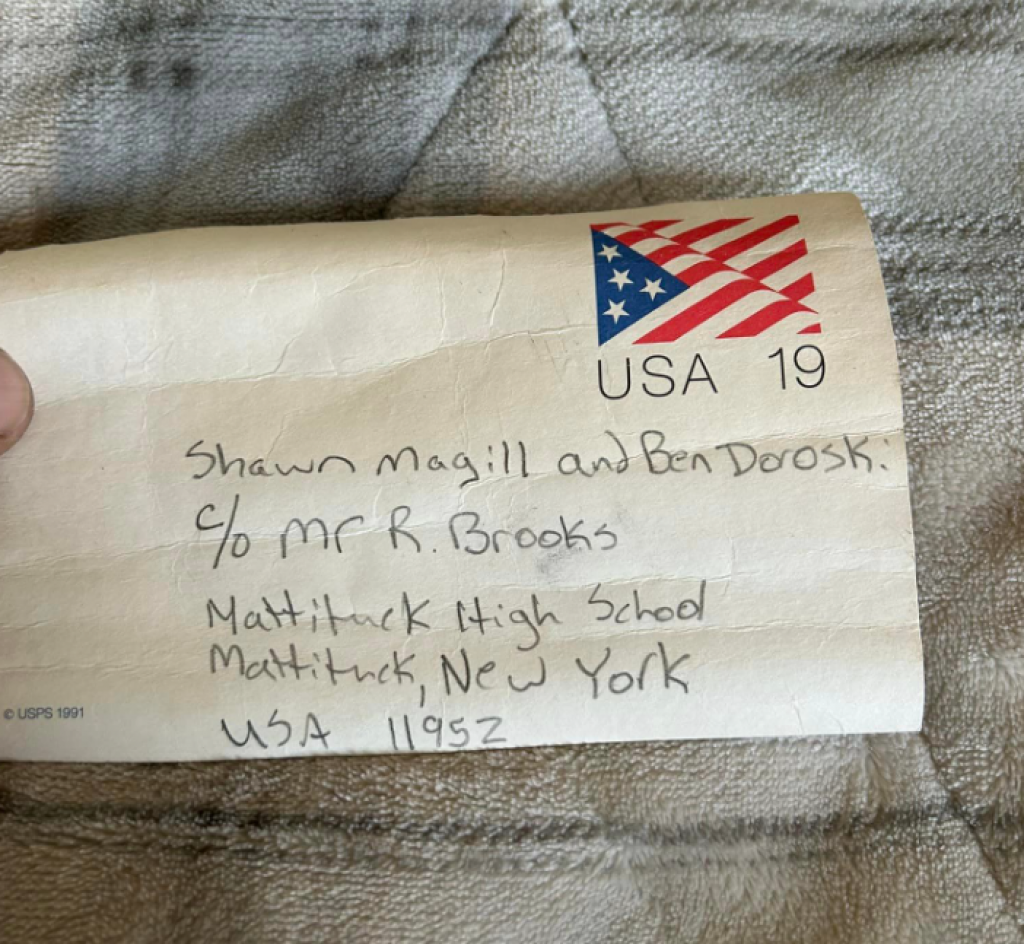 USA 19
Shawn Magill and Ben Doroski
c/o Mr R. Brooks
Mattituck High School
Mattituck, New York
© USPS 1991
USA 11952